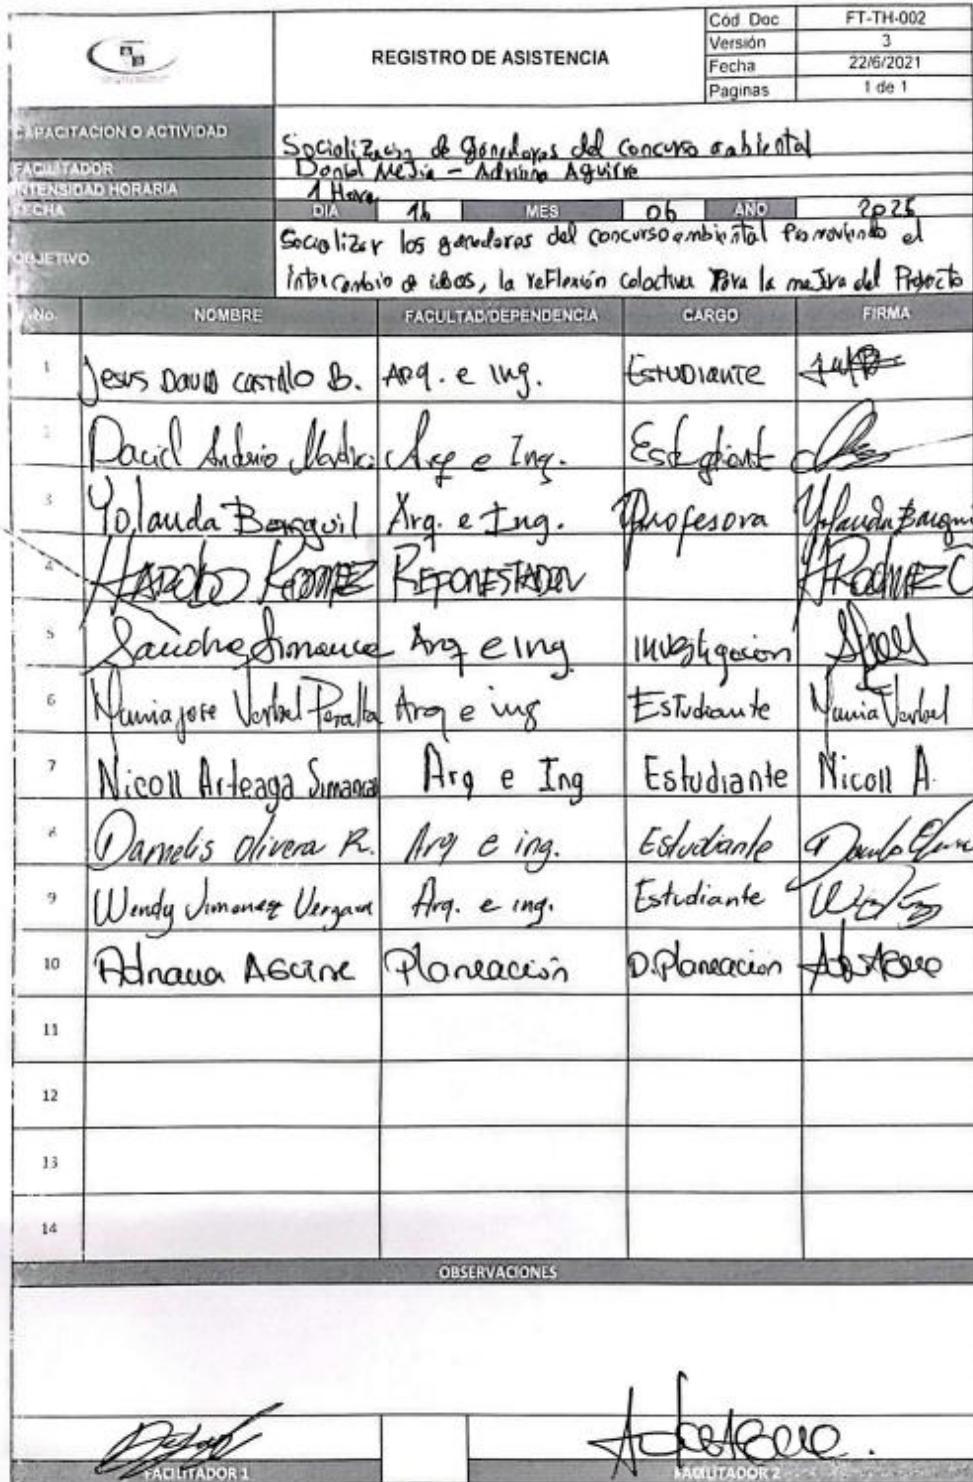 REGISTRO DE ASISTENCIA
Cód Doc FT-TH-002
Versión 3
Fecha 22/6/2021
Paginas 1 de 1
CAPACITACION O ACTIVIDAD Socialización de ganadores del concurso ambiental
FACILITADOR Daniel Mejia - Adriana Aguirre
INTENSIDAD HORARIA 1 Hora
FECHA DIA 16 MES 06 AÑO 2025
OBJETIVO Socializar los ganadores del concurso ambiental promoviendo el
intercambio de ideas, la reflexión colectiva para la mejora del Proyecto
No. NOMBRE FACULTAD/DEPENDENCIA CARGO FIRMA
1 Jesus David Castillo B. Arq. e Ing. Estudiante
2 Antonio Arq e Ing. Estudiante
3 Yolanda Barraguil Arq. e Ing. Profesora Yolanda
4 HAROLDO REFORESTADOR
5 Sandra Simanca Arq e ing Investigacion
6 Mariajose Verbel Peralta Arq e ing Estudiante Maria Verbel
7 Nicoll Arteaga Simanca Arq e Ing Estudiante Nicoll A.
8 Damelis Olivera R. Arq e ing. Estudiante
9 Wendy Jimenez Vergara Arq. e ing. Estudiante
10 Adriana Aguirre Planeación D. Planeación
11
12
13
14
OBSERVACIONES
FACILITADOR 1 FACILITADOR 2